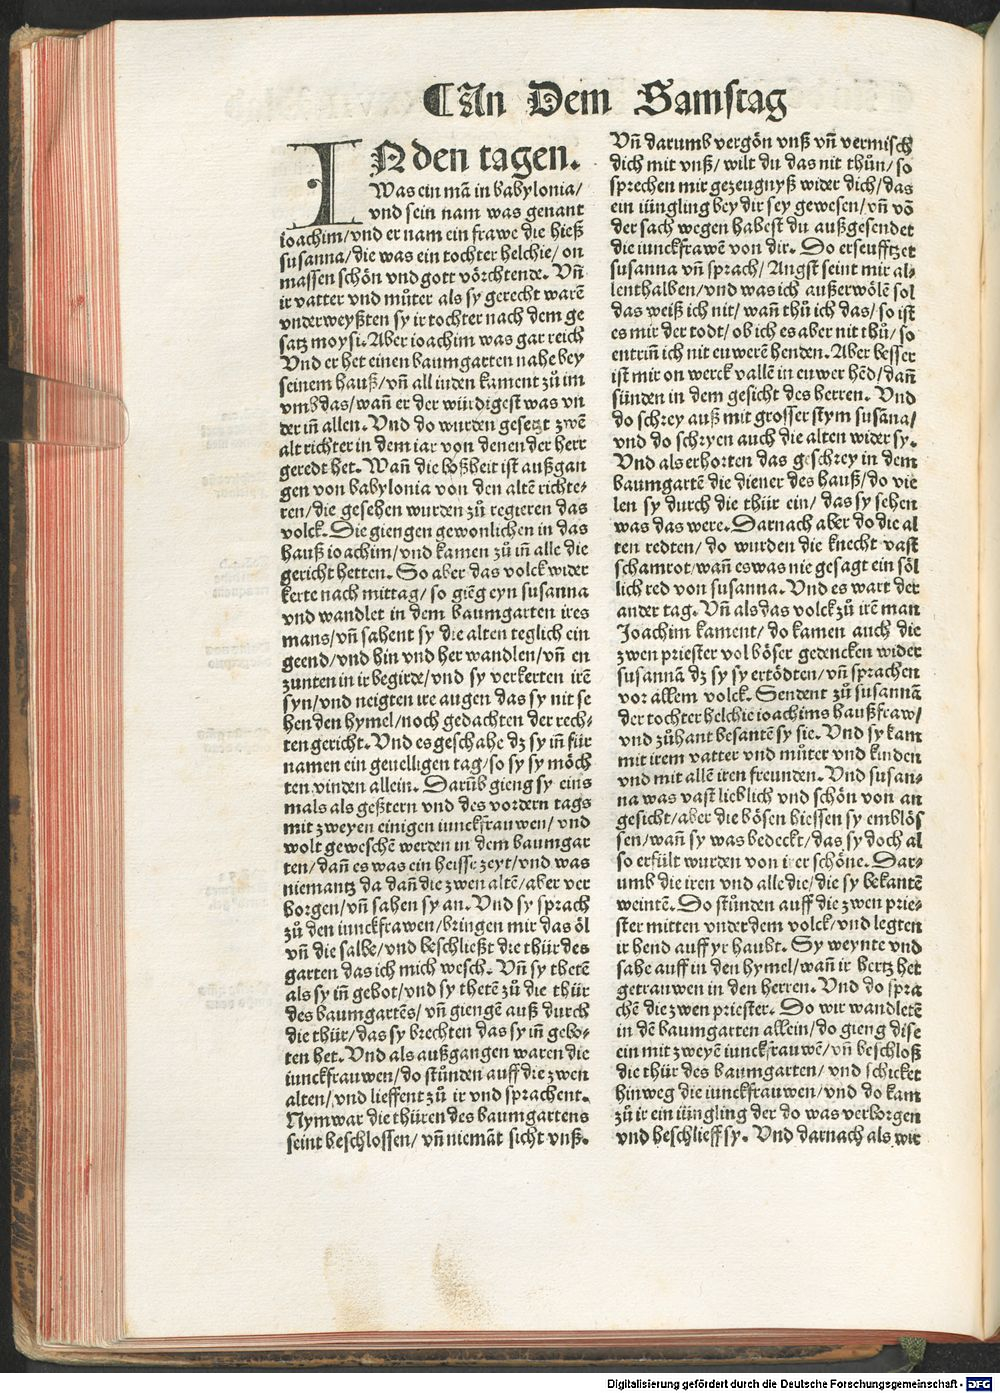 ¶An Dem Samstag
IN den tagen.
Was ein mā in babylonia/
vnd sein nam was genant
ioachim/vnd er nam ein frawe die hieß
susanna/die was ein tochter helchie/on
massen schön vnd gott vörchtende. Vn̄
ir vatter vnd můter als sy gerecht warē
vnderweyßten sy ir tochter nach dem ge
satz moysi. Aber ioachim was gar reich
Vnd er het einen baumgarten nahe bey
seinem hauß/vn̄ all iuden kament zů im
vmb das/wan̄ er der wirdigest was vn
der in̄ allen. Vnd do wurden gesetzt zwē
alt richter in dem iar von denen der herr
geredt het. Wan̄ die boßheit ist außgan
gen von babylonia von den altē richte-
ren/die gesehen wurden zů regieren das
volck. Die giengen gewonlichen in das
hauß ioachim/vnd kamen zů in̄ alle die
gericht hetten. So aber das volck wider
kerte nach mittag/so giēg eyn susanna
vnd wandlet in dem baumgarten ires
mans/vn̄ sahent sy die alten teglich ein
geend/vnd hin vnd her wandlen/vn̄ en
zunten in ir begirde/vnd sy verkerten irē
syn/vnd neigten ire augen das sy nit se
hen den hymel/noch gedachten der rech-
ten gericht. Vnd es geschahe dz sy in̄ für
namen ein geuelligen tag/so sy sy möch
ten vinden allein. Darūb gieng sy eins
mals als geßtern vnd des vordern tags
mit zweyen einigen iunckfrauwen/vnd
wolt geweschē werden in dem baumgar
ten/dan̄ es was ein heisse zeyt/vnd was
niemantz da dan̄ die zwen altē/aber ver
borgen/vn̄ sahen sy an. Vnd sy sprach
zů den iunckfrawen/bringen mir das öl
vn̄ die salbe/vnd beschließt die thür des
garten das ich mich wesch. Vn̄ sy thetē
als sy in̄ gebot/vnd sy thetē zů die thür
des baumgartēs/vn̄ giengē auß durch
die thür/das sy brechten das sy in̄ gebo-
ten het. Vnd als außgangen waren die
iunckfrauwen/do stůnden auff die zwen
alten/vnd lieffent zů ir vnd sprachent.
Nymwar die thüren des baumgartens
seint beschlossen/vn̄ niemāt sicht vnß.
Vn̄ darumb vergön vnß vn̄ vermisch
dich mit vnß/wilt du das nit thůn/so
sprechen mir gezeugnyß wider dich/das
ein iüngling bey dir sey gewesen/vn̄ vō
der sach wegen habest du außgesendet
die iunckfrawē von dir. Do erseufftzet
susanna vn̄ sprach/Angst seint mir al-
lenthalben/vnd was ich außerwölē sol
das weiß ich nit/wan̄ thů ich das/so ist
es mir der todt/ob ich es aber nit thů/so
entrin̄ ich nit euwerē henden. Aber besser
ist mir on werck vallē in euwer hēd/dan̄
sünden in dem gesicht des herren. Vnd
do schrey auß mit grosser stym susāna/
vnd do schryen auch die alten wider sy.
Vnd als erhorten das geschrey in dem
baumgartē die diener des hauß/do vie
len sy durch die thür ein/das sy sehen
was das were. Darnach aber do die al
ten redten/do wurden die knecht vast
schamrot/wan̄ es was nie gesagt ein söl
lich red von susanna. Vnd es wart der
ander tag. Vn̄ als das volck zů irē man
Joachim kament/do kamen auch die
zwen priester vol böser gedencken wider
susannā dz sy sy ertödten/vn̄ sprachen
vor allem volck. Sendent zů susannā
der tochter helchie ioachims haußfraw/
vnd zůhant besantē sy sie. Vnd sy kam
mit irem vatter vnd můter vnd kinden
vnd mit allē iren freunden. Vnd susan-
na was vast lieblich vnd schön von an
gesicht/aber die bösen hiessen sy emblös
sen/wan̄ sy was bedeckt/das sy doch al
so erfült wurden von irer schöne. Dar-
umb die iren vnd alle die/die sy bekantē
weintē. Do stůnden auff die zwen prie-
ster mitten vnder dem volck/vnd legten
ir hend auff yr haubt. Sy weynte vnd
sahe auff in den hymel/wan̄ ir hertz het
getrauwen in den herren. Vnd do spra
chē die zwen priester. Do wir wandletē
in dē baumgarten allein/do gieng dise
ein mit zweyē iunckfrauwē/vn̄ beschloß
die thür des baumgarten/vnd schicket
hinweg die iunckfrauwen/vnd do kam
zů ir ein iüngling der do was verborgen
vnd beschlieff sy. Vnd darnach als wir
Digitalisierung gefördert durch die Deutsche Forschungsgemeinschaft - DFG